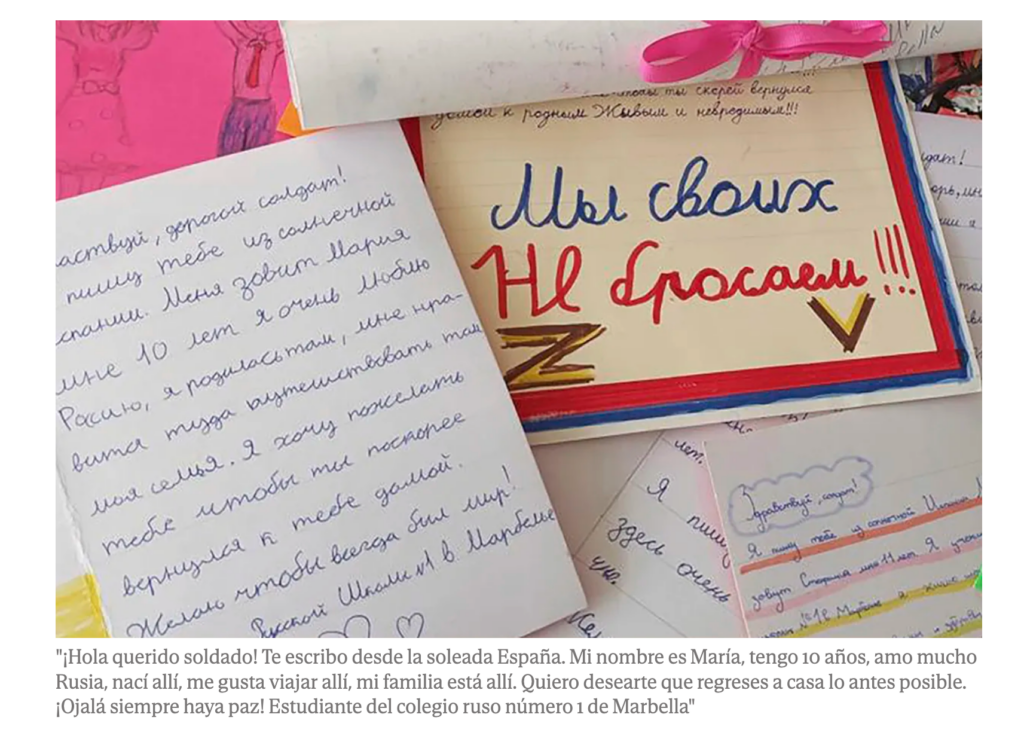 чтобы ты скорей вернулся
домой к родным Живым и невредимым!!!
Мы своих
Не бросаем!!!
Z V
аствуй, дорогой солдат!
пишу тебе из солнечной
спании. Меня зовит Мария
мне 10 лет я очень люблю
Россию, я родилась там, мне нра-
вится туда путешествовать там
моя семья. Я хочу пожелать
тебе штобы ты поскорее
вернулся к тебе домой.
Желаю чтобы всегда был мир!
Русской Школы №1 в Марбелье
дат!
лет.
Я пишу
здесь очень
Здравствуй, солдат!
Я пишу тебе из солнечной
зовут мне 11 лет. Я
"¡Hola querido soldado! Te escribo desde la soleada España. Mi nombre es María, tengo 10 años, amo mucho
Rusia, nací allí, me gusta viajar allí, mi familia está allí. Quiero desearte que regreses a casa lo antes posible.
¡Ojalá siempre haya paz! Estudiante del colegio ruso número 1 de Marbella"